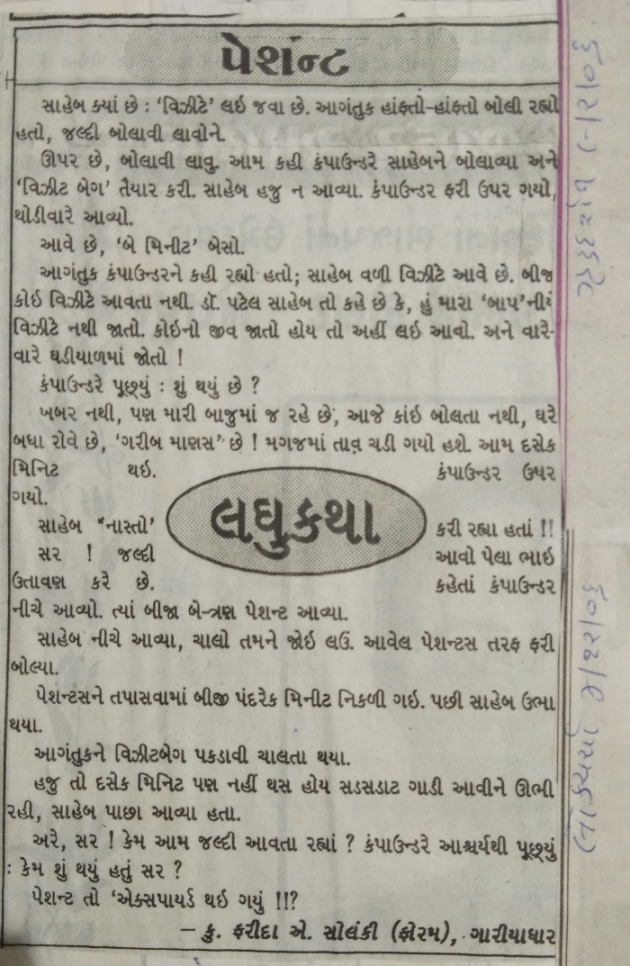 પેશન્ટ
સાહેબ ક્યાં છે : 'વિઝીટે' લઇ જવા છે. આગંતુક હાંફતો-હાંફતો બોલી રહ્યો
હતો, જલ્દી બોલાવી લાવોને.
ઊપર છે, બોલાવી લાવુ. આમ કહી કંપાઉન્ડરે સાહેબને બોલાવ્યા અને
'વિઝીટ બેગ' તૈયાર કરી. સાહેબ હજુ ન આવ્યા. કંપાઉન્ડર ફરી ઉપર ગયો,
થોડીવારે આવ્યો.
આવે છે, 'બે મિનીટ' બેસો.
આગંતુક કંપાઉન્ડરને કહી રહ્યો હતો; સાહેબ વળી વિઝીટે આવે છે. બીજા
કોઇ વિઝીટે આવતા નથી. ડૉ. પટેલ સાહેબ તો કહે છે કે, હું મારા 'બાપ'નીયે
વિઝીટે નથી જાતો. કોઇનો જીવ જાતો હોય તો અહીં લઇ આવો. અને વારે-
વારે ઘડીયાળમાં જોતો !
કંપાઉન્ડરે પૂછ્યું : શું થયું છે ?
ખબર નથી, પણ મારી બાજુમાં જ રહે છે, આજે કાંઇ બોલતા નથી, ઘરે
બધા રોવે છે, 'ગરીબ માણસ' છે ! મગજમાં તાવ ચડી ગયો હશે. આમ દસેક
મિનિટ થઇ. કંપાઉન્ડર ઉપર
ગયો.
લઘુકથા
સાહેબ "નાસ્તો' કરી રહ્યા હતાં !!
સર ! જલ્દી આવો પેલા ભાઇ
ઉતાવણ કરે છે. કહેતાં કંપાઉન્ડર
નીચે આવ્યો. ત્યાં બીજા બે-ત્રણ પેશન્ટ આવ્યા.
સાહેબ નીચે આવ્યા, ચાલો તમને જોઇ લઉં. આવેલ પેશન્ટસ તરફ ફરી
બોલ્યા.
પેશન્ટસને તપાસવામાં બીજી પંદરેક મિનીટ નિકળી ગઇ. પછી સાહેબ ઉભા
થયા.
આગંતુકને વિઝીટબેગ પકડાવી ચાલતા થયા.
હજુ તો દસેક મિનિટ પણ નહીં થસ હોય સડસડાટ ગાડી આવીને ઊભી
રહી, સાહેબ પાછા આવ્યા હતા.
અરે, સર ! કેમ આમ જલ્દી આવતા રહ્યાં ? કંપાઉન્ડરે આશ્ચર્યથી પૂછ્યું
: કેમ શું થયું હતું સર ?
પેશન્ટ તો 'એક્સપાયર્ડ થઇ ગયું !!?
– કુ. ફરીદા એ. સોલંકી (ફોરમ), ગારીયાધાર